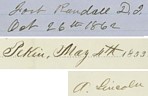 Fort Randall D.T.
Oct 26th 1862
Pekin, May 4th 1833
A. Lincoln